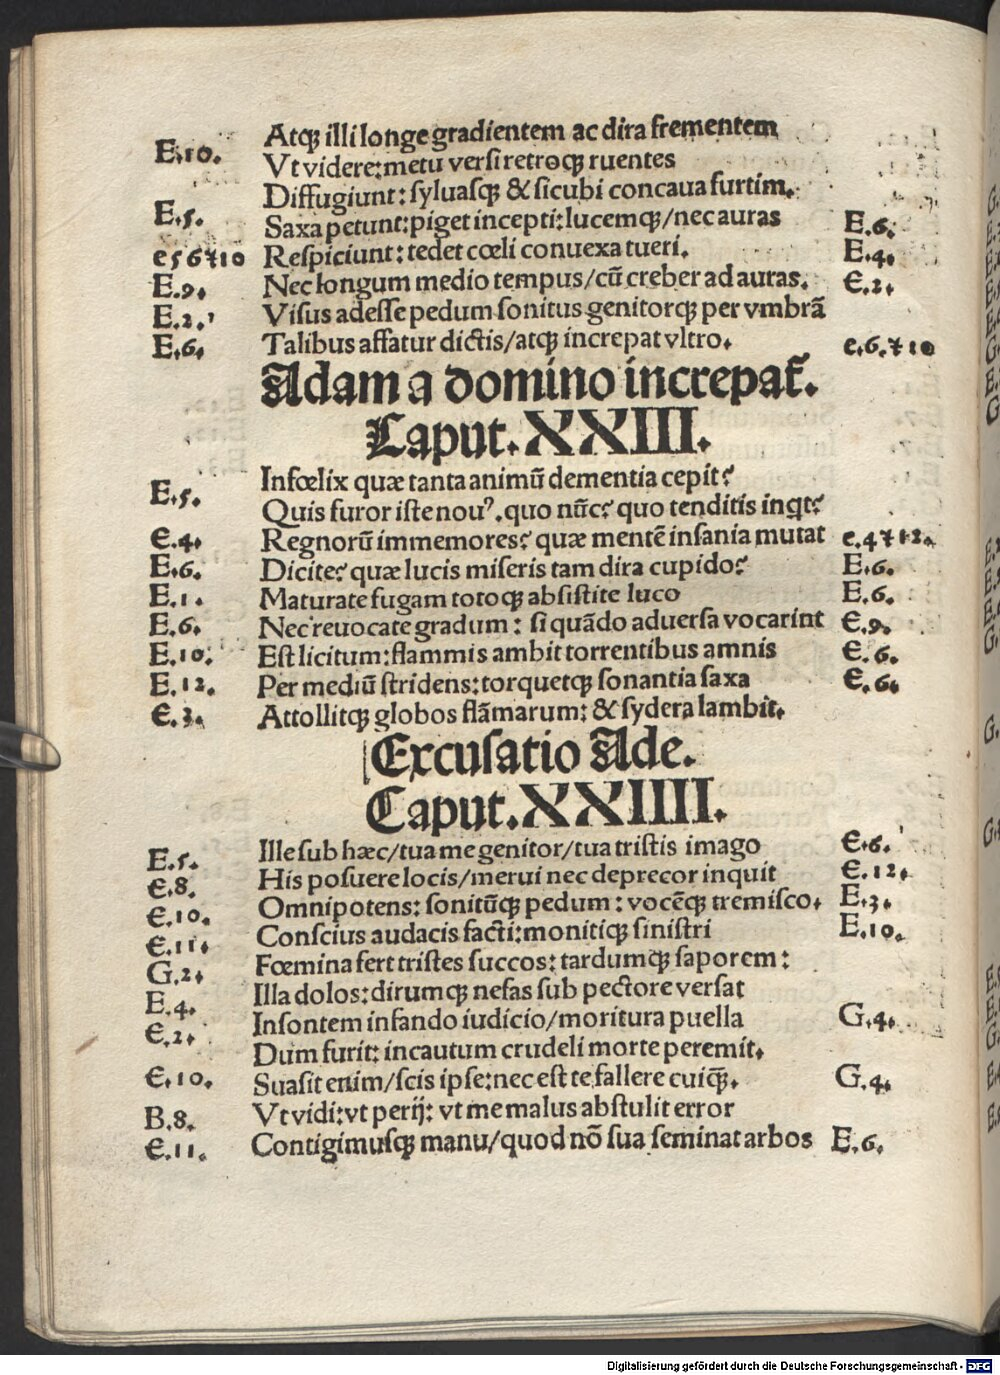 Atqꝫ illi longe gradientem ac dira frementem
E.10. Vt videre: metu versi retroqꝫ ruentes
Diffugiunt: syluasqꝫ & sicubi concaua furtim.
E.5. Saxa petunt: piget incepti: lucemqꝫ/nec auras E.6.
e 5 6 ⁊ 10 Respiciunt: tedet cœli conuexa tueri. E.4.
E.9. Nec longum medio tempus/cū creber ad auras. E.2.
E.2. Visus adesse pedum sonitus genitorqꝫ per vmbrā
E.6. Talibus affatur dictis/atqꝫ increpat vltro. e.6.⁊ 10
Adam a domino increpat̄.
Caput. XXIII.
Infœlix quæ tanta animū dementia cepit?
E.5. Quis furor iste nouꝰ. quo nūc? quo tenditis inq̇t?
E.4. Regnorū immemores? quæ mentē insania mutat e.4 ⁊ 12.
E.6. Dicite? quæ lucis miseris tam dira cupido? E.6.
E.1. Maturate fugam totoqꝫ absistite luco E.6.
E.6. Nec reuocate gradum: si quādo aduersa vocarint E.9.
E.10. Est licitum: flammis ambit torrentibus amnis E.6.
E.12. Per mediū stridens: torquetqꝫ sonantia saxa E.6.
E.3. Attollitqꝫ globos flāmarum: & sydera lambit.
Excusatio Ade.
Caput. XXIIII.
E.5. Ille sub hæc/tua me genitor/tua tristis imago E.6.
E.8. His posuere locis/merui nec deprecor inquit E.12.
E.10. Omnipotens: sonitūqꝫ pedum: vocēqꝫ tremisco. E.3.
E.11. Conscius audacis facti: monitiqꝫ sinistri E.10.
G.2. Fœmina fert tristes succos: tardumqꝫ saporem:
E.4. Illa dolos: dirumqꝫ nefas sub pectore versat
E.2. Insontem infando iudicio/moritura puella G.4.
Dum furit: incautum crudeli morte peremit.
E.10. Suasit enim/scis ipse: nec est te fallere cuiqꝫ̄. G.4.
B.8. Vt vidi: vt perij: vt me malus abstulit error
E.11. Contigimusqꝫ manu/quod nō sua seminat arbos E.6.
Digitalisierung gefördert durch die Deutsche Forschungsgemeinschaft - DFG